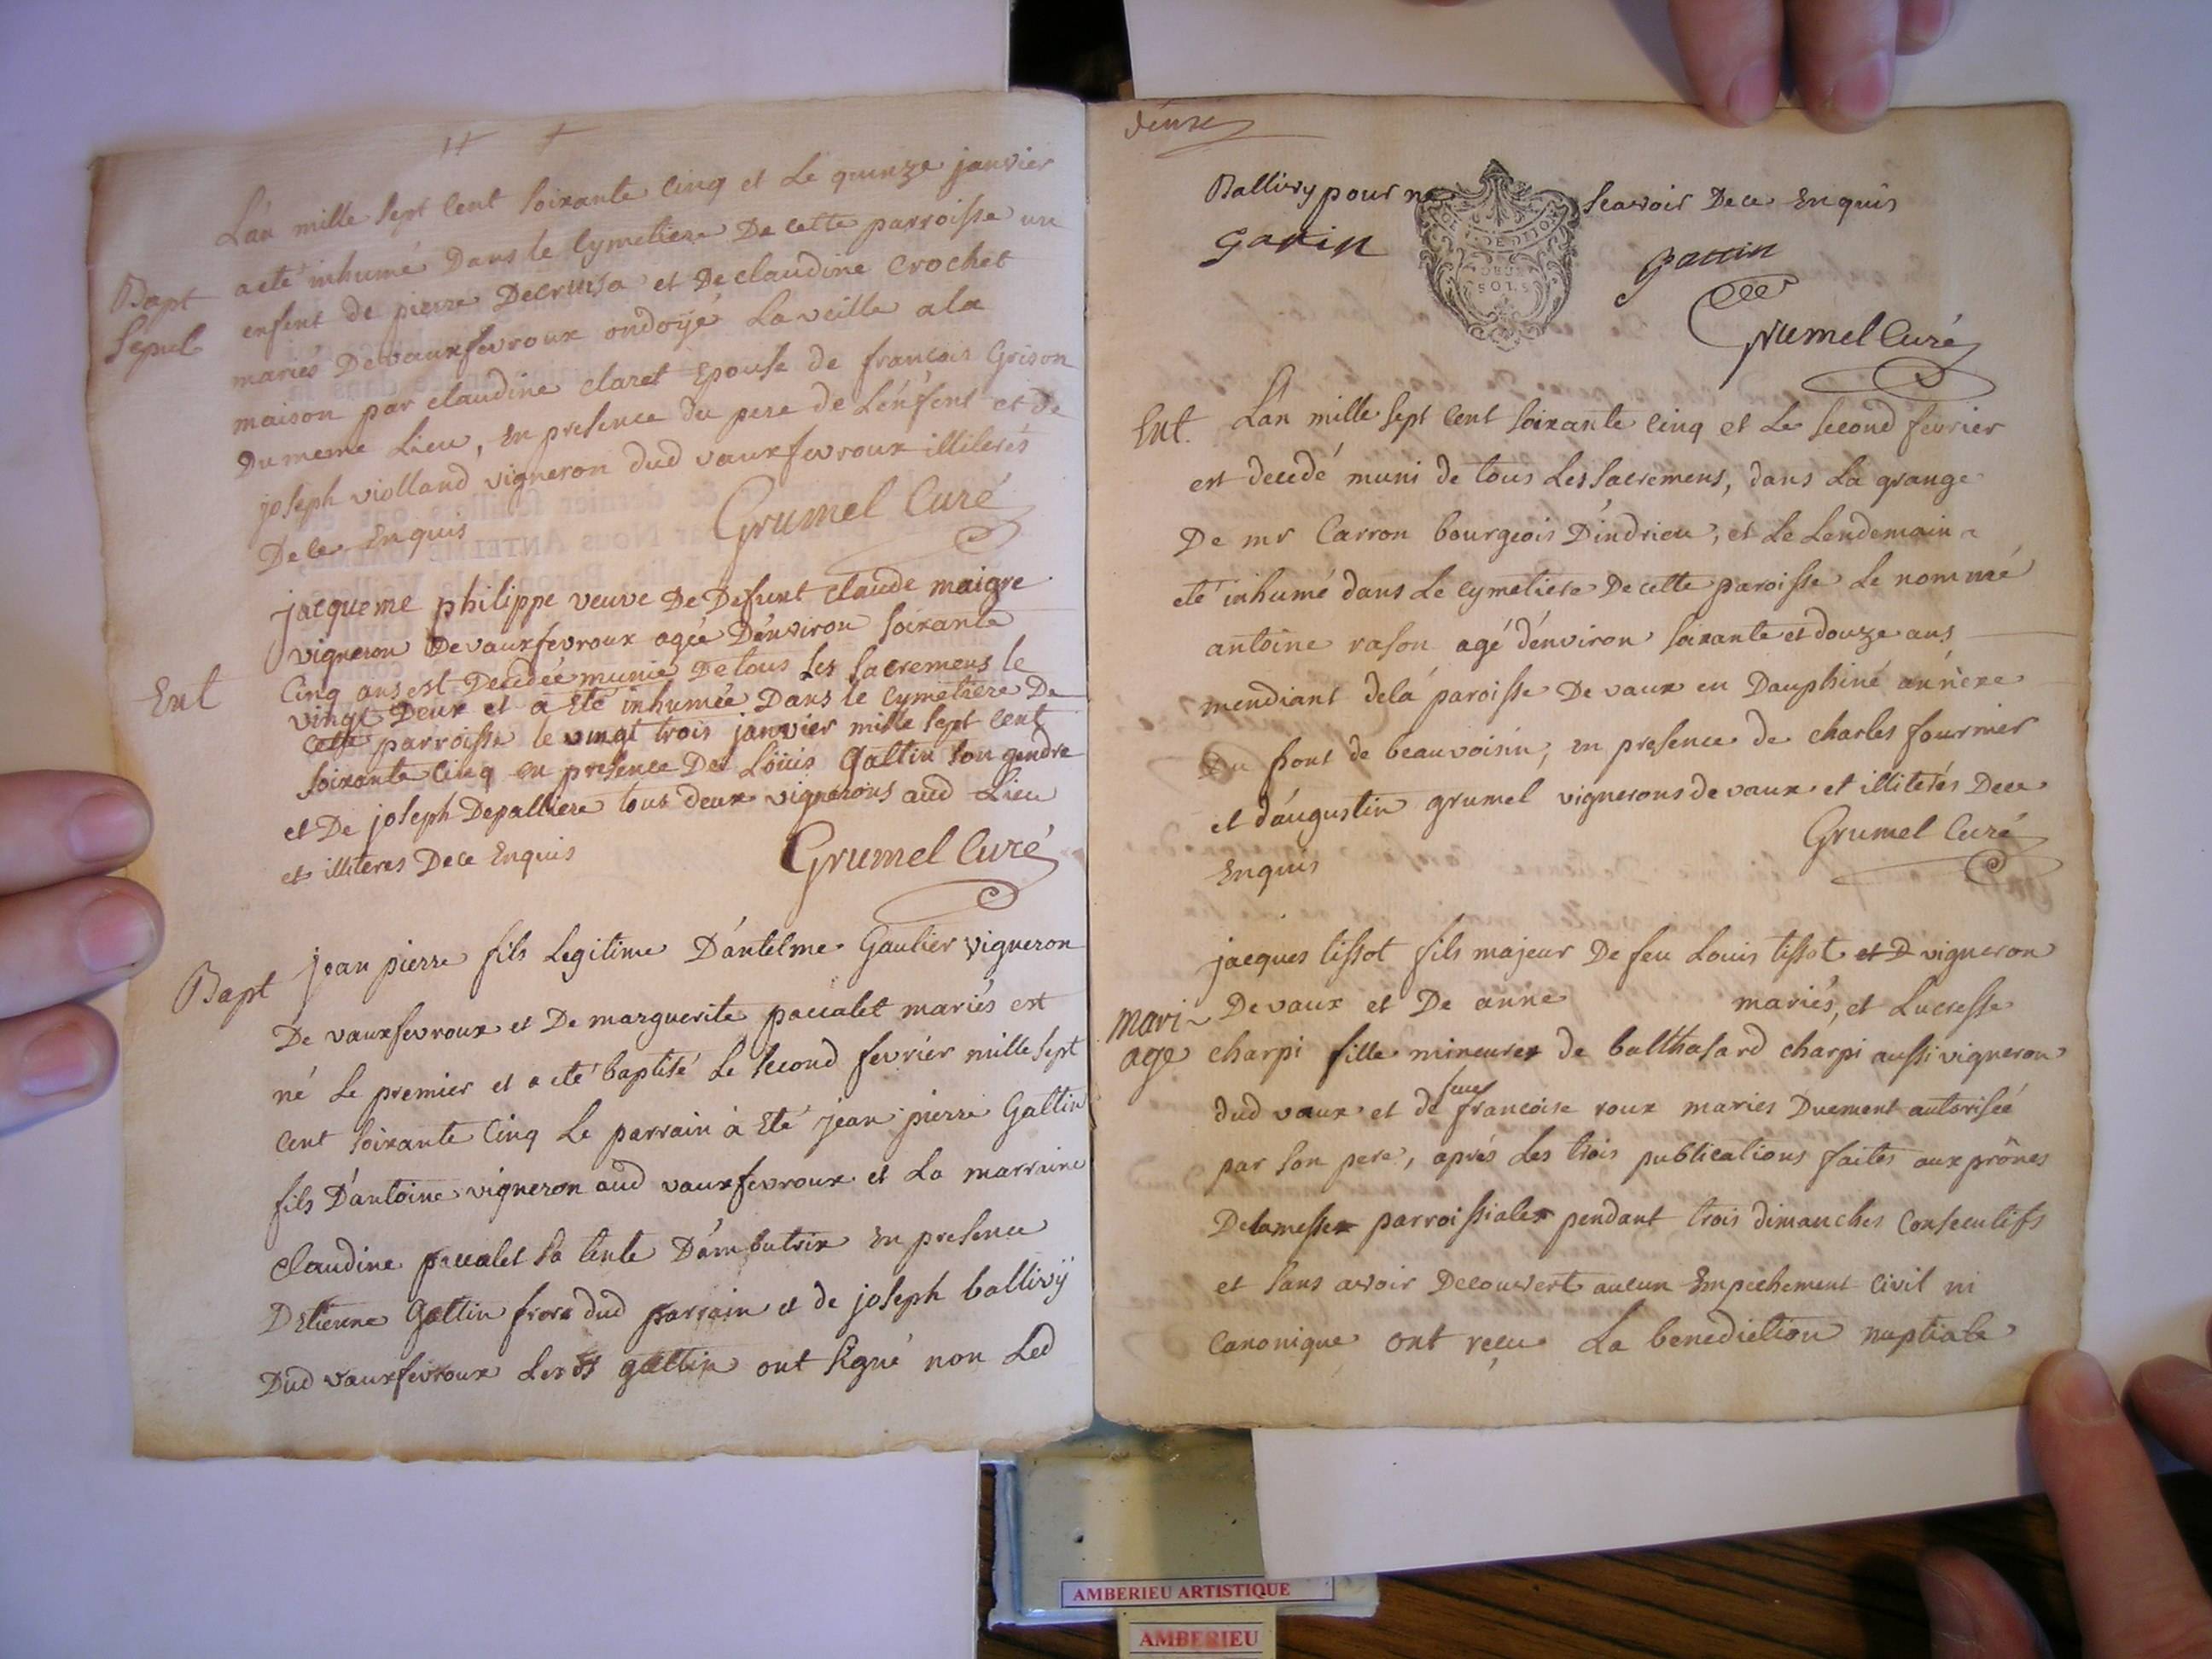 L'an mille sept cent soixante cinq et Le quinze janvier
Bapt
Sepul
a eté inhumé Dans le Cymetiere De cette parroisse un
enfent de pierre Decrusa et De claudine Crochet
mariés De vauxfevroux ondoyé La veille a la
maison par claudine claret Epouse de françois Grison
Du meme Lieu, En presence du pere de L'énfent et de
joseph violland vigneron dud vauxfevroux illiterés
De ce Enquis
Grumel Curé
Ent
jacqueme philippe veuve De Defunt claude maigre
vigneron De vauxfevroux agée D'énviron soixante
Cinq ans est Decedée munie De tous les sacremens le
vingt Deux et a Eté inhumée Dans le Cymetiere De
Cette parroisse le vingt trois janvier mille sept cent
soixante Cinq en presence De Loüis Gattin son gendre
et De joseph Depalliere tous deux vignerons aud Lieu
et illiteres De ce Enquis
Grumel Curé
Bapt
jean pierre fils Legitime D'antelme Gautier vigneron
De vauxfevroux et De marguerite paccalet mariés est
né Le premier et a eté baptisé Le second fevrier mille sept
Cent soixante Cinq Le parrain à Eté jean pierre Gattin
fils D'antoine vigneron aud vauxfevroux et La marraine
Claudine paccalet sa tente D'ámbutrix En presence
D'Etienne Gattin frere dud parrain et de joseph ballivÿ
Dud vauxfevroux Les gattin ont signé non Led
Ballivy pour ne scavoir De ce Enquis
SOLS
gatin
gattin
Grumel Curé
Ent.
L'an mille sept cent soixante cinq et Le second fevrier
est decedé muni de tous Les sacremens, dans La grange
De mr Carron bourgeois D'indrieu, et Le Lendemain a
eté inhumé dans Le cymetiere De cette paroisse Le nommé
antoine rason agé d'énviron soixante et douze ans
mendiant dela paroisse De vaux en Dauphiné annéxe
Du pont de beauvoisin, en presence de charles fournier
et d'augustin grumel vignerons de vaux et illiterés De ce
Enquis
Grumel Curé
Mari-
age
jacques tissot fils majeur De feu Louis tissot et D vigneron
De vaux et De anne mariés, et Lucresse
charpi fille mineure de balthasard charpi aussi vigneron
dud vaux et de feue francoise roux maries Duement autorisée
par son pere, aprés Les trois publications faites aux prônes
De la messe parroissiale pendant trois dimanches Consecutifs
et sans avoir Decouvert aucun Empechement Civil ni
Canonique ont reçu La benediction nuptiale
AMBERIEU ARTISTIQUE
AMBERIEU